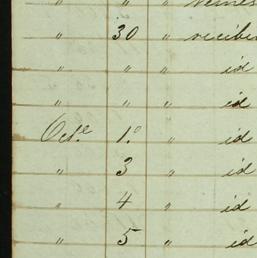 " " "
" 30 " recibi
" " " id
" " " id
Oct.e 1.º " id
" 3 " id
" 4 " id
" 5 " id